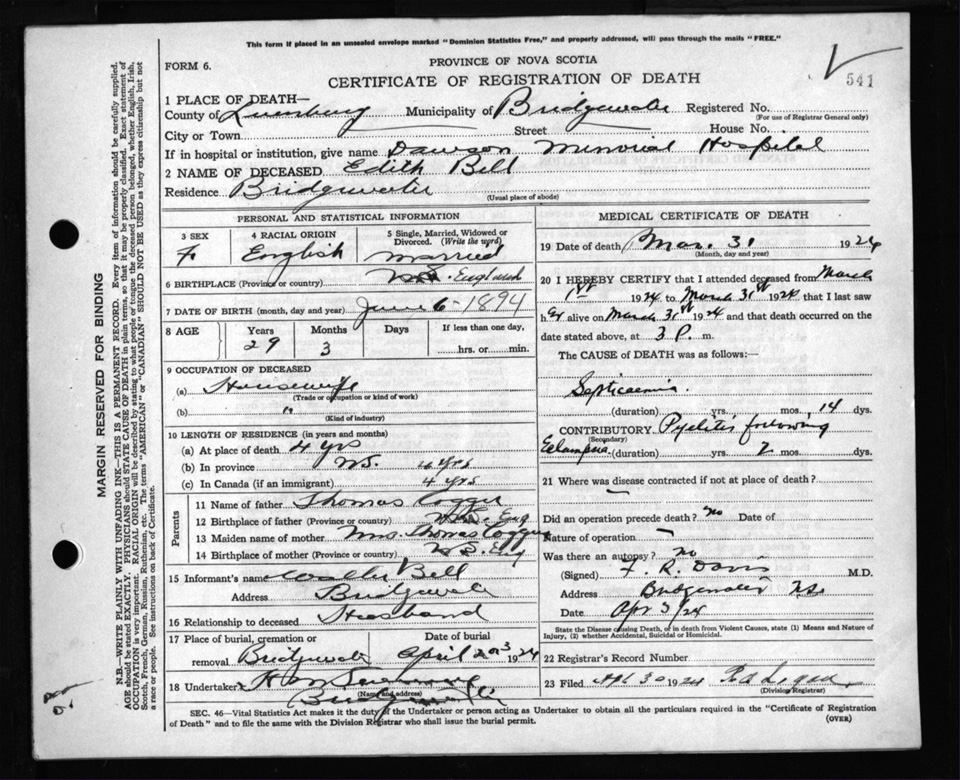 This form if placed in an unsealed envelope marked "Dominion Statistics Free," and properly addressed, will pass through the mails "FREE."
FORM 6.
PROVINCE OF NOVA SCOTIA
CERTIFICATE OF REGISTRATION OF DEATH
541
1 PLACE OF DEATH—
County of Lunenburg Municipality of Bridgewater Registered No.
(For use of Registrar General only)
City or Town Street House No.
If in hospital or institution, give name Dawson Memorial Hospital
2 NAME OF DECEASED Edith Bell
Residence Bridgewater
(Usual place of abode)
MARGIN RESERVED FOR BINDING
N.B.—WRITE PLAINLY WITH UNFADING INK—THIS IS A PERMANENT RECORD. Every item of information should be carefully supplied.
AGE should be stated EXACTLY. PHYSICIANS should STATE CAUSE OF DEATH in plain terms, so that it may be properly classified. Exact statement of
OCCUPATION is very important. RACIAL ORIGIN will be described by stating to what people or tongue the deceased person belonged, whether English, Irish,
Scotch, French, German, Russian, Ruthenian, etc. The terms "AMERICAN" or "CANADIAN" SHOULD NOT BE USED as they express citizenship but not
a race or people. See instructions on back of Certificate.
PERSONAL AND STATISTICAL INFORMATION
3 SEX
F
4 RACIAL ORIGIN
English
5 Single, Married, Widowed or
Divorced. (Write the word)
Married
6 BIRTHPLACE (Province or country) England
7 DATE OF BIRTH (month, day and year) June 6 - 1894
8 AGE Years Months Days If less than one day,
29 3 hrs. or min.
9 OCCUPATION OF DECEASED
(a) Housewife
(Trade or occupation or kind of work)
(b) "
(Kind of industry)
10 LENGTH OF RESIDENCE (in years and months)
(a) At place of death 4 yrs
(b) In province N.S. 4 yrs
(c) In Canada (if an immigrant) 4 yrs
Parents
11 Name of father Thomas
12 Birthplace of father (Province or country) Eng
13 Maiden name of mother Mrs. Thomas
14 Birthplace of mother (Province or country) Eng
15 Informant's name Bell
Address Bridgewater
16 Relationship to deceased Husband
17 Place of burial, cremation or Date of burial
removal Bridgewater April 1924
18 Undertaker
(Name and address)
Bridgewater
MEDICAL CERTIFICATE OF DEATH
19 Date of death Mar. 31 1924
(Month, day and year)
20 I HEREBY CERTIFY that I attended deceased from March
1st 1924 to March 31st 1924 that I last saw
her alive on March 31st 1924 and that death occurred on the
date stated above, at 3 P. m.
The CAUSE OF DEATH was as follows:
Septicaemia
(duration) yrs. mos. 14 dys.
CONTRIBUTORY Pyelitis following
(Secondary)
Eclampsia (duration) yrs. 2 mos. dys.
21 Where was disease contracted if not at place of death?
Did an operation precede death? No Date of
Nature of operation
Was there an autopsy? no
(Signed) F. R. Davis M.D.
Address Bridgewater N.S.
Date Apr 3/24
State the Disease causing Death, or in death from Violent Causes, state (1) Means and Nature of
Injury, (2) whether Accidental, Suicidal or Homicidal.
22 Registrar's Record Number
23 Filed Apl 30 1924
(Division Registrar)
SEC. 46—Vital Statistics Act makes it the duty of the Undertaker or person acting as Undertaker to obtain all the particulars required in the "Certificate of Registration
of Death" and to file the same with the Division Registrar who shall issue the burial permit.
(OVER)